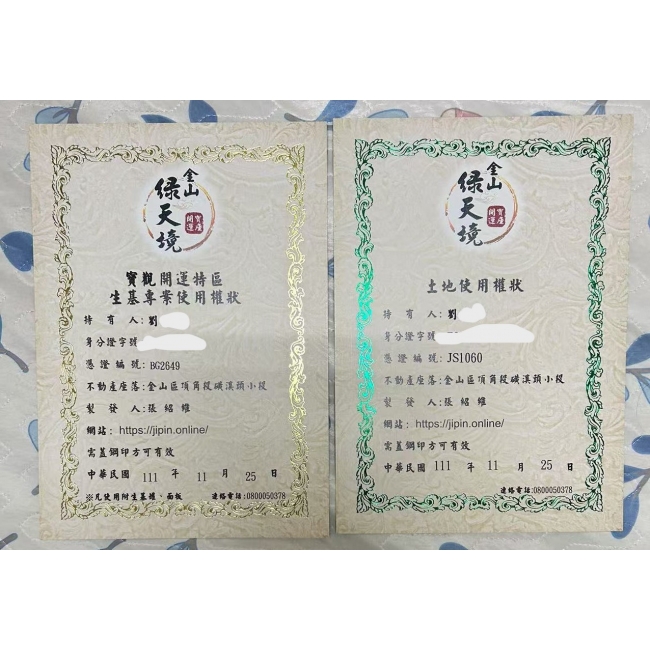 金山
綠天境
寶座
開運
寶觀開運特區
生基專業使用權狀
持有人:劉
身分證字號
憑證編號:BG2649
不動產座落:金山區頂角段磺溪頭小段
製發人:張紹維
網站: https://jipin.online/
需蓋鋼印方可有效
中華民國 111 年 11 月 25 日
※凡使用附生基罐、面板
連絡電話:0800050378
金山
綠天境
寶座
開運
土地使用權狀
持有人:劉
身分證字號:
憑證編號:JS1060
不動產座落:金山區頂角段磺溪頭小段
製發人:張紹維
網站: https://jipin.online/
需蓋鋼印方可有效
中華民國 111 年 11 月 25 日
連絡電話:0800050378